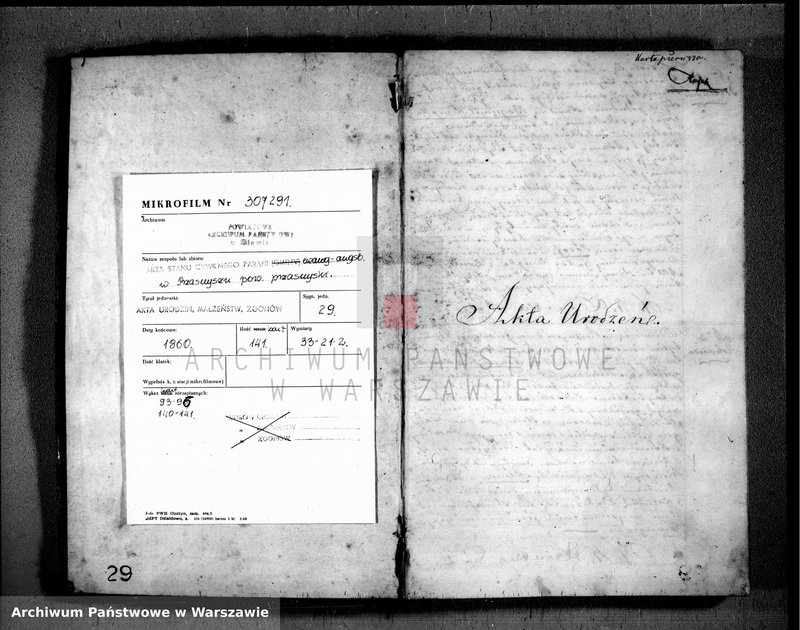 MIKROFILM Nr 307291.
Archiwum
POWIATOWE
ARCHIWUM PAŃSTWOWE
w Mławie
Nazwa zespołu lub zbioru:
AKTA STANU CYWILNEGO PARAFII ewang-augsb.
w Przasnyszu pow. przasnyski.
Tytuł jednostki:
AKTA URODZEŃ, MAŁŻEŃSTW, ZGONÓW
Sygn. jedn.
29.
Daty końcowe:
1860.
Ilość
141.
Wymiary
33-21-2.
Ilość klatek:
Wypełnia k. t. stacji mikrofilmowej
Wykaz niezapisanych:
93-96
140-141.
ZGONÓW
29
Karta pierwsza.
Akta Urodzeń.
ARCHIWUM PAŃSTWOWE
W WARSZAWIE
Archiwum Państwowe w Warszawie